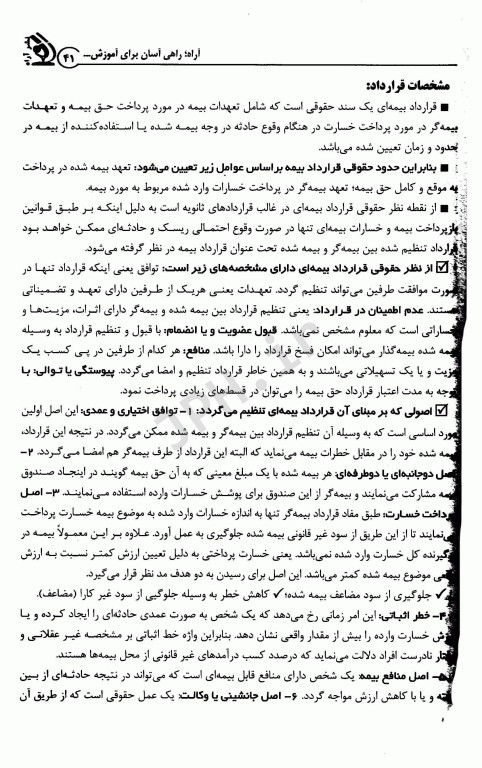 آراه؛ راهی آسان برای آموزش... ۴۱ نشر آراه
مشخصات قرارداد:
■ قرارداد بیمه‌ای یک سند حقوقی است که شامل تعهدات بیمه در مورد پرداخت حق بیمه و تعهدات
بیمه‌گر در مورد پرداخت خسارت در هنگام وقوع حادثه در وجه بیمه شده یا استفاده‌کننده از بیمه در
حدود و زمان تعیین شده می‌باشد.
■ بنابراین حدود حقوقی قرارداد بیمه براساس عوامل زیر تعیین می‌شود: تعهد بیمه شده در پرداخت
به موقع و کامل حق بیمه؛ تعهد بیمه‌گر در پرداخت خسارات وارد شده مربوط به مورد بیمه.
■ از نقطه نظر حقوقی قرارداد بیمه‌ای در غالب قراردادهای ثانویه است به دلیل اینکه بر طبق قوانین
بازپرداخت بیمه و خسارات بیمه‌ای تنها در صورت وقوع احتمالی ریسک و حادثه‌ای ممکن خواهد بود
قرارداد تنظیم شده بین بیمه‌گر و بیمه شده تحت عنوان قرارداد بیمه در نظر گرفته می‌شود.
☑ از نظر حقوقی قرارداد بیمه‌ای دارای مشخصه‌های زیر است: توافق یعنی اینکه قرارداد تنها در
صورت موافقت طرفین می‌تواند تنظیم گردد. تعهدات یعنی هریک از طرفین دارای تعهد و تضمیناتی
هستند. عدم اطمینان در قرارداد: یعنی تنظیم قرارداد بین بیمه شده و بیمه‌گر دارای اثرات، مزیت‌ها و
خساراتی است که معلوم مشخص نمی‌باشد. قبول عضویت و یا انضمام: با قبول و تنظیم قرارداد به وسیله
بیمه شده بیمه‌گذار می‌تواند امکان فسخ قرارداد را دارا باشد. منافع: هر کدام از طرفین در پی کسب یک
مزیت و یا یک تسهیلاتی می‌باشند و به همین خاطر قرارداد تنظیم و امضا می‌گردد. پیوستگی یا توالی: با
توجه به مدت اعتبار قرارداد حق بیمه را می‌توان در قسط‌های زیادی پرداخت نمود.
☑ اصولی که بر مبنای آن قرارداد بیمه‌ای تنظیم می‌گردد: ۱- توافق اختیاری و عمدی: این اصل اولین
مورد اساسی است که به وسیله آن تنظیم قرارداد بین بیمه‌گر و بیمه شده ممکن می‌گردد. در نتیجه این قرارداد،
بیمه شده خود را در مقابل خطرات بیمه می‌نماید که البته این قرارداد از طرف بیمه‌گر هم امضا می‌گردد. ۲-
اصل دوجانبه‌ای یا دوطرفه‌ای: هر بیمه شده با یک مبلغ معینی که به آن حق بیمه گویند در اینجاد صندوق
بیمه مشارکت می‌نمایند و بیمه‌گر از این صندوق برای پوشش خسارات وارده استفاده می‌نمایند. ۳- اصل
پرداخت خسارت: طبق مفاد قرارداد بیمه‌گر تنها به اندازه خسارات وارد شده به موضوع بیمه خسارت پرداخت
می‌نمایند تا از این طریق از سود غیر قانونی بیمه شده جلوگیری به عمل آورد. علاوه بر این معمولاً بیمه در
برگیرنده کل خسارت وارد شده نمی‌باشد. یعنی خسارت پرداختی به دلیل تعیین ارزش کمتر نسبت به ارزش
موضوع بیمه شده کمتر می‌باشد. این اصل برای رسیدن به دو هدف مد نظر قرار می‌گیرد.
✓ جلوگیری از سود مضاعف بیمه شده؛ ✓ کاهش خطر به وسیله جلوگیی از سود غیر کارا (مضاعف).
۴- خطر اثباتی: این امر زمانی رخ می‌دهد که یک شخص به صورت عمدی حادثه‌ای را ایجاد کرده و یا
ارزش خسارت وارده را بیش از مقدار واقعی نشان دهد. بنابراین واژه خط اثباتی بر مشخصه غیر عقلانی و
رفتار نادرست افراد دلالت می‌نماید که درصدد کسب درآمدهای غیر قانونی از محل بیمه‌ها هستند.
۵- اصل منافع بیمه: یک شخص دارای منافع قابل بیمه‌ای است که می‌تواند در نتیجه حادثه‌ای از بین
رفته و یا با کاهش ارزش مواجه گردد. ۶- اصل جانشینی یا وکالت: یک عمل حقوقی است که از طریق آن
JPN.ir